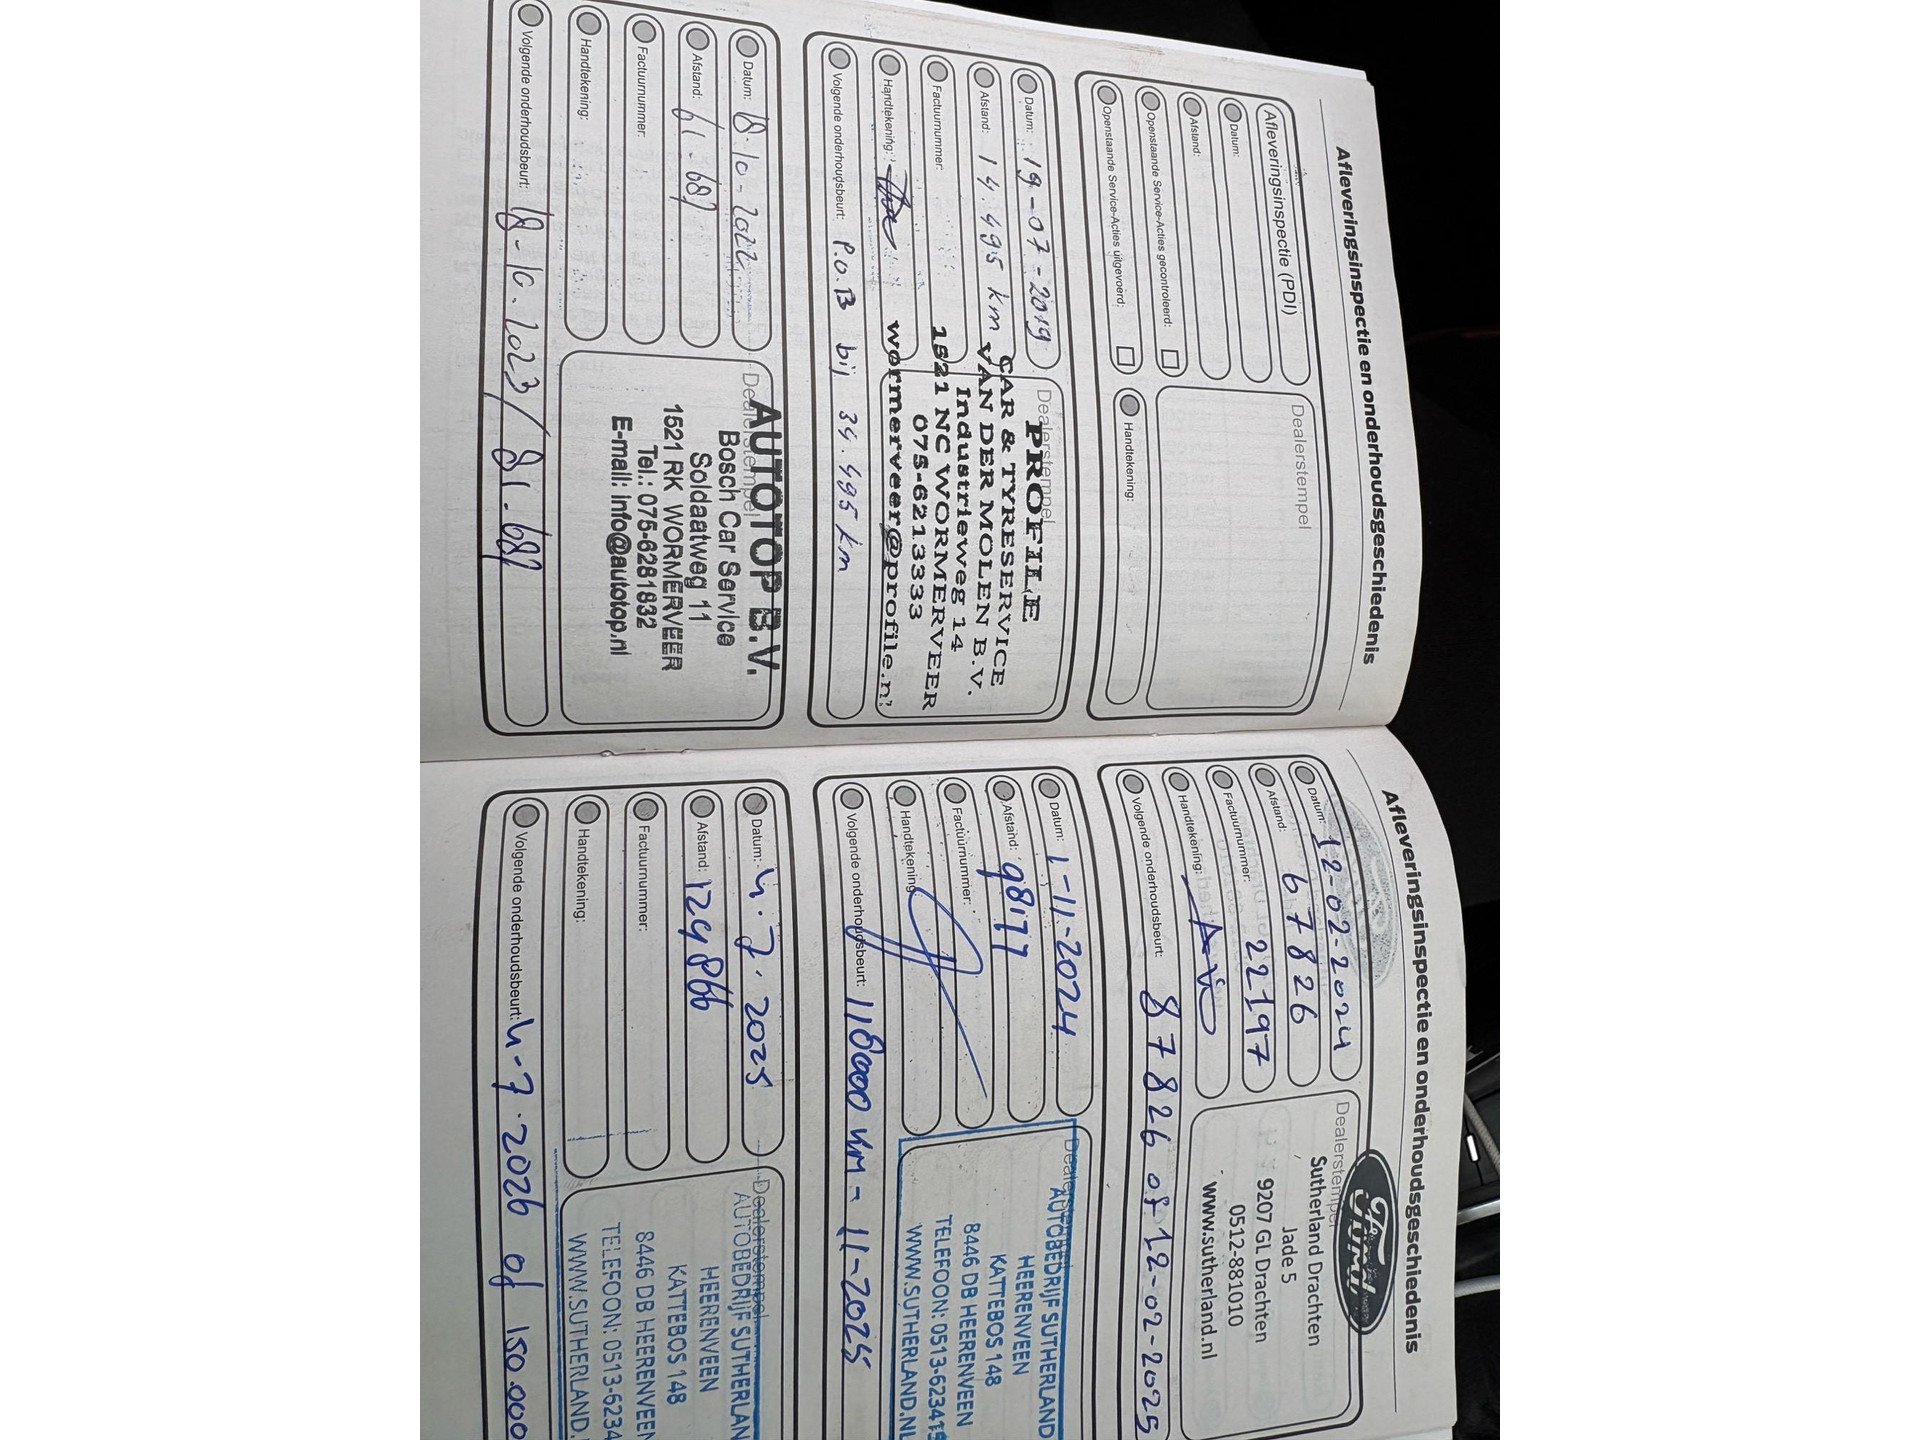 Afleveringsinspectie en onderhoudsgeschiedenis
Afleveringsinspectie (PDI)
Datum:
Afstand:
Openstaande Service-Acties gecontroleerd:
Openstaande Service-Acties uitgevoerd:
Dealerstempel
Handtekening:
Datum: 19-07-2019
Afstand: 14.495 km
Factuurnummer:
Handtekening:
Volgende onderhoudsbeurt: P.O.B bij 34.495 km
Dealerstempel
PROFILE
CAR & TYRESERVICE
VAN DER MOLEN B.V.
Industrieweg 14
1521 NC WORMERVEER
075-6213333
wormerveer@profile.nl
Datum: 18-10-2022
Afstand: 61.687
Factuurnummer:
Handtekening:
Volgende onderhoudsbeurt: 18-10.2023 / 81.687
Dealerstempel
AUTOTOP B.V.
Bosch Car Service
Soldaatweg 11
1521 RK WORMERVEER
Tel.: 075-6281832
E-mail: info@autotop.nl
Afleveringsinspectie en onderhoudsgeschiedenis
Datum: 12-02-2024
Afstand: 67826
Factuurnummer: 22197
Handtekening:
Volgende onderhoudsbeurt: 87826 of 12-02-2025
Dealerstempel
Ford
Sutherland Drachten
Jade 5
9207 GL Drachten
0512-881010
www.sutherland.nl
Datum: 1-11-2024
Afstand: 98177
Factuurnummer:
Handtekening:
Volgende onderhoudsbeurt: 118000 km - 11-2025
Dealerstempel
AUTOBEDRIJF SUTHERLAND
HEERENVEEN
KATTEBOS 148
8446 DB HEERENVEEN
TELEFOON: 0513-623415
WWW.SUTHERLAND.NL
Datum: 4.7.2025
Afstand: 129866
Factuurnummer:
Handtekening:
Volgende onderhoudsbeurt: 4-7.2026 of 150.000
Dealerstempel
AUTOBEDRIJF SUTHERLAN
HEERENVEEN
KATTEBOS 148
8446 DB HEERENVEEN
TELEFOON: 0513-6234
WWW.SUTHERLAND.